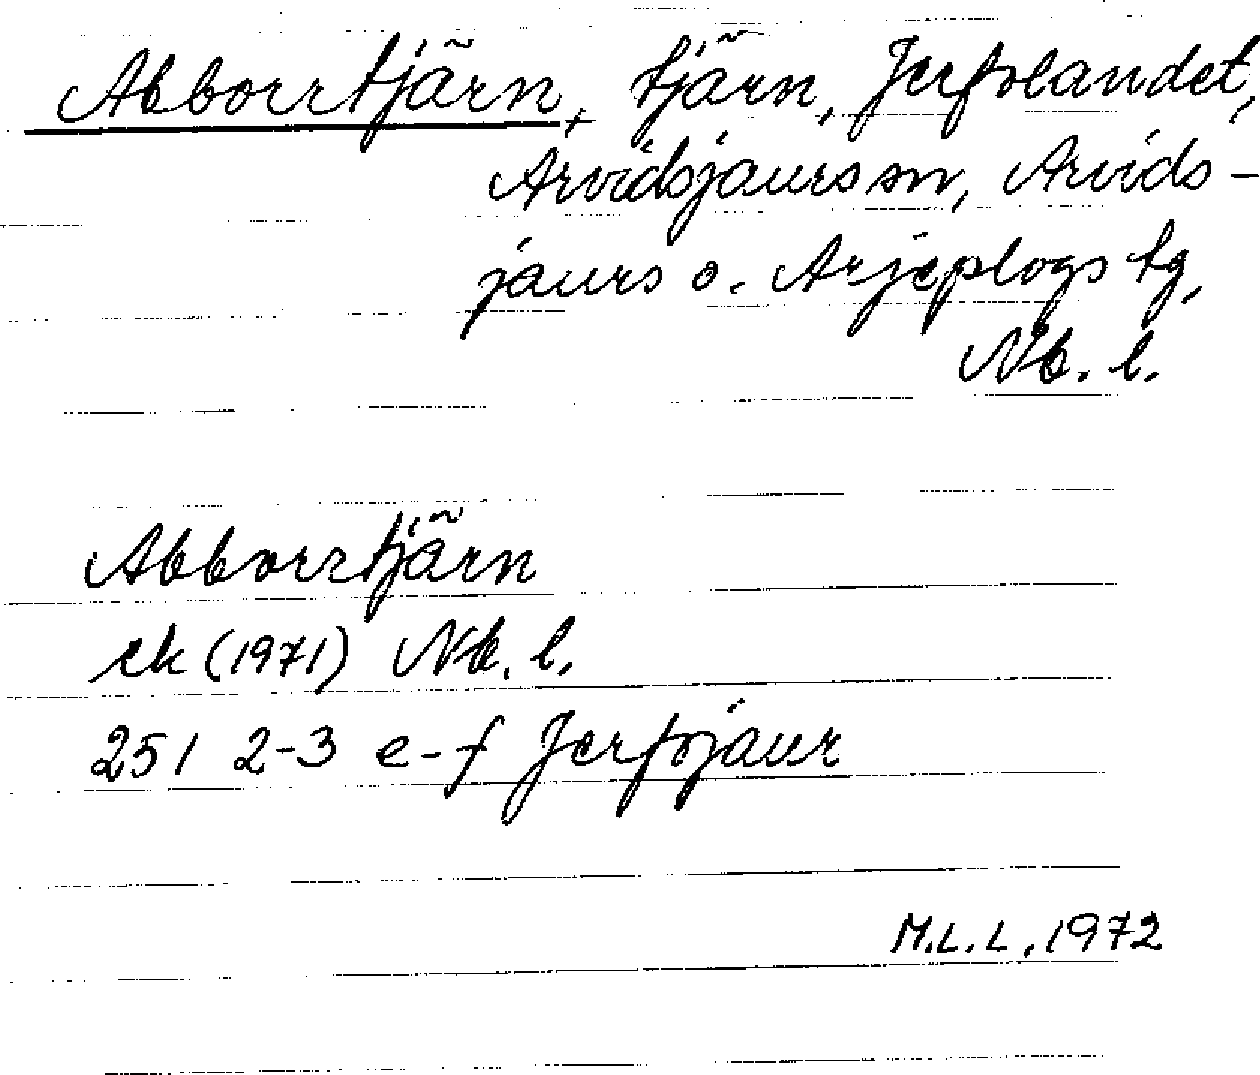 Abborrtjärn, tjärn, Jerfolandet,
Arvidsjaurs sn, Arvids-
jaurs o. Arjeplogs tg,
Nb. l.
Abborrtjärn
ek (1971) Nb. l.
251 2-3 e-f Jerfojaur
M.L.L., 1972